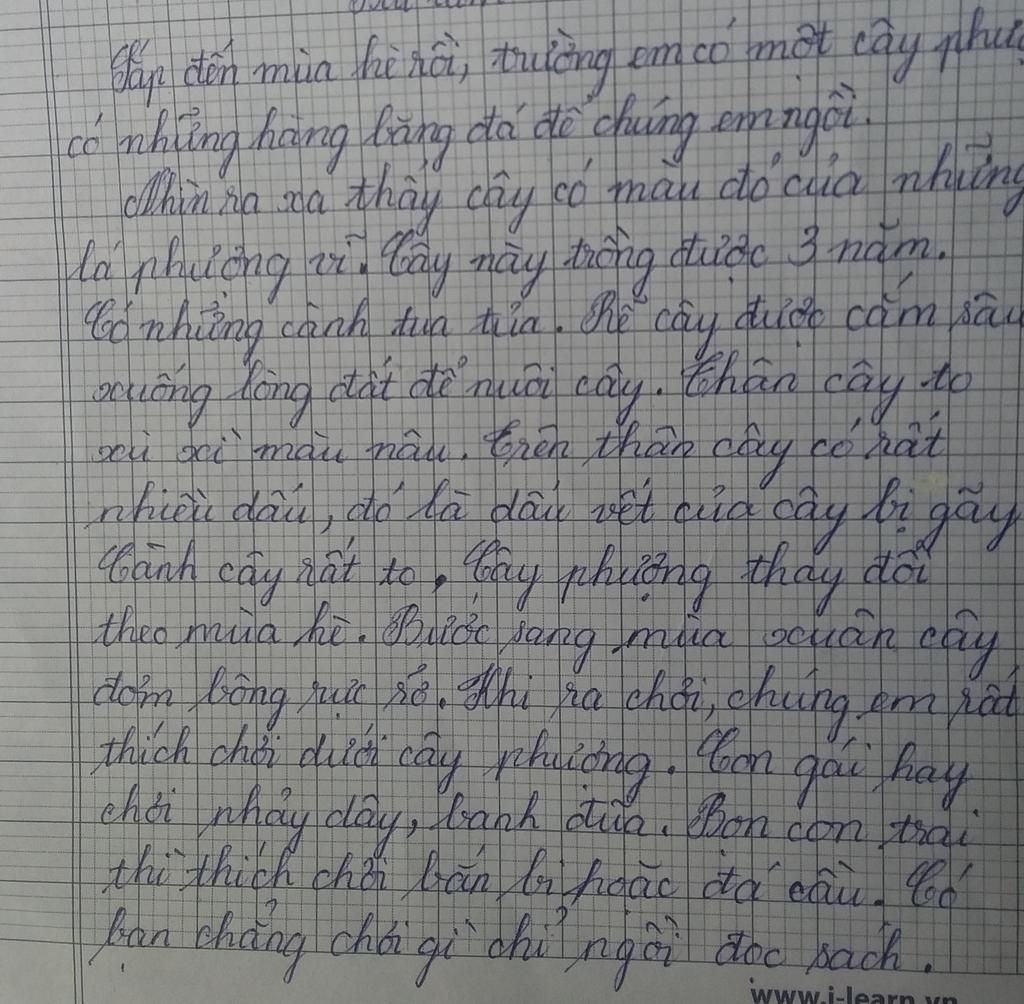 Sắp đến mùa hè rồi, trường em có một cây
có những hàng băng đá để chúng em ngồi.
Nhìn ra xa thấy cây có màu đỏ của những
lá phượng vĩ. Cây này trồng được 3 năm.
Có những cành tua tủa. Rễ cây được cắm sâu
xuống lòng đất để nuôi cây. Thân cây to
xù xì màu nâu. Trên thân cây có rất
nhiều dấu, đó là dấu vết của cây bị gãy
Cành cây rất to, Cây phượng thay đổi
theo mùa hè. Bước sang mùa xuân cây
đơm bông rực rỡ. Khi ra chơi, chúng em rất
thích chơi dưới cây phượng. Con gái hay
chơi nhảy dây, banh đũa. Bọn con trai
thì thích chơi bắn bi hoặc đá cầu. Có
bạn chẳng chơi gì chỉ ngồi đọc sách.
www.i-learn.vn